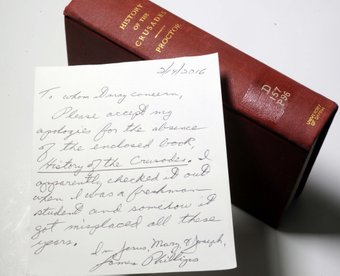 HISTORY
OF THE
CRUSADES
PROCTOR
D
157
P96
2/17/2016
To whom It may concern,
Please accept my
apologies for the absence
of the enclosed book,
History of the Crusades. I
apparently checked it out
when I was a freshman
student and somehow it
got misplaced all these
years.
In Jesus, Mary & Joseph,
James Phillips